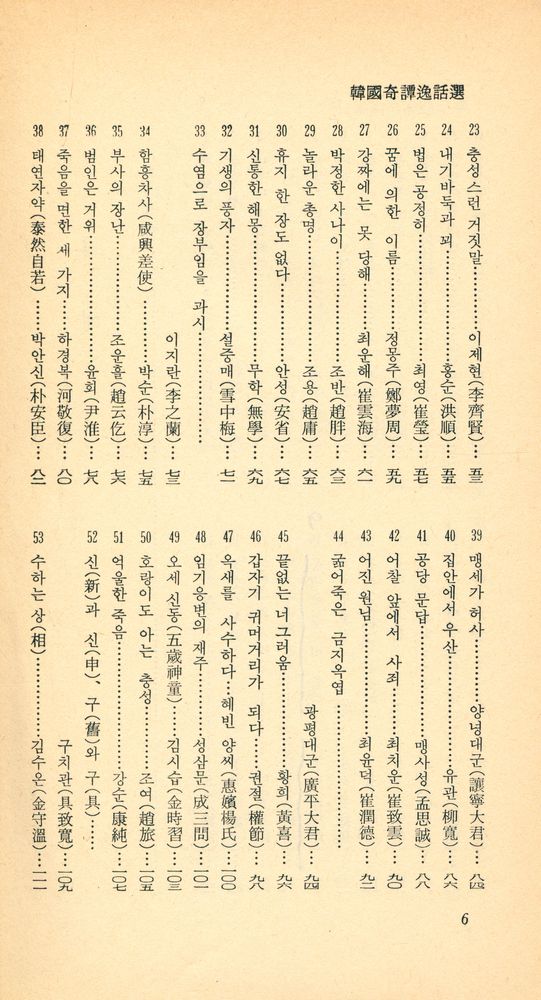 韓國奇譚逸話選
23 충성스런 거짓말……이제현(李齊賢)…五三
24 내기바둑과 꾀……홍순(洪順)…五五
25 법은 공정히……최영(崔瑩)…五七
26 꿈에 의한 이름……정몽주(鄭夢周)…五九
27 강짜에는 못 당해……최운해(崔雲海)…六一
28 박정한 사나이……조반(趙胖)…六三
29 놀라운 총명……조용(趙庸)…六五
30 휴지 한 장도 없다……안성(安省)…六七
31 신통한 해몽……무학(無學)…六九
32 기생의 풍자……설중매(雪中梅)…七一
33 수염으로 장부임을 과시……
이지란(李之蘭)…七三
34 함흥차사(咸興差使)……박순(朴淳)…七五
35 부사의 장난……조운흘(趙云仡)…七六
36 범인은 거위……윤회(尹淮)…七八
37 죽음을 면한 세 가지……하경복(河敬復)…八〇
38 태연자약(泰然自若)……박안신(朴安臣)…八二
39 맹세가 허사……양녕대군(讓寧大君)…八四
40 집안에서 우산……유관(柳寬)…八六
41 공당 문답……맹사성(孟思誠)…八八
42 어찰 앞에서 사죄……최치운(崔致雲)…九〇
43 어진 원님……최윤덕(崔潤德)…九二
44 굶어죽은 금지옥엽……
광평대군(廣平大君)…九四
45 끝없는 너그러움……황희(黃喜)…九六
46 갑자기 귀머거리가 되다……권절(權節)…九八
47 옥새를 사수하다…혜빈 양씨(惠嬪楊氏)…一〇〇
48 임기응변의 재주……성삼문(成三問)…一〇一
49 오세 신동(五歲神童)……김시습(金時習)…一〇三
50 호랑이도 아는 충성……조여(趙旅)…一〇五
51 억울한 죽음……강순(康純)…一〇七
52 신(新)과 신(申)、구(舊)와 구(具)……
구치관(具致寬)…一〇九
53 수하는 상(相)……김수온(金守溫)…一一一
6